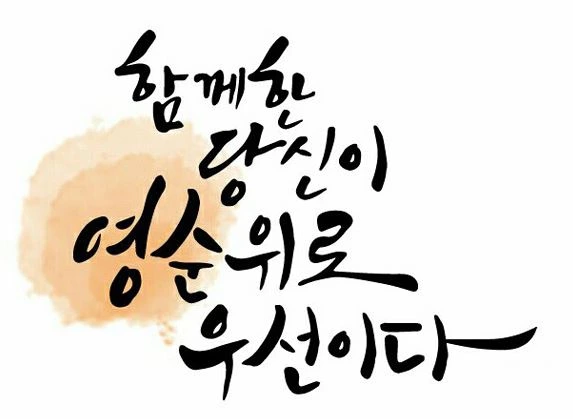 함께한
당신이
영순위로
우선이다